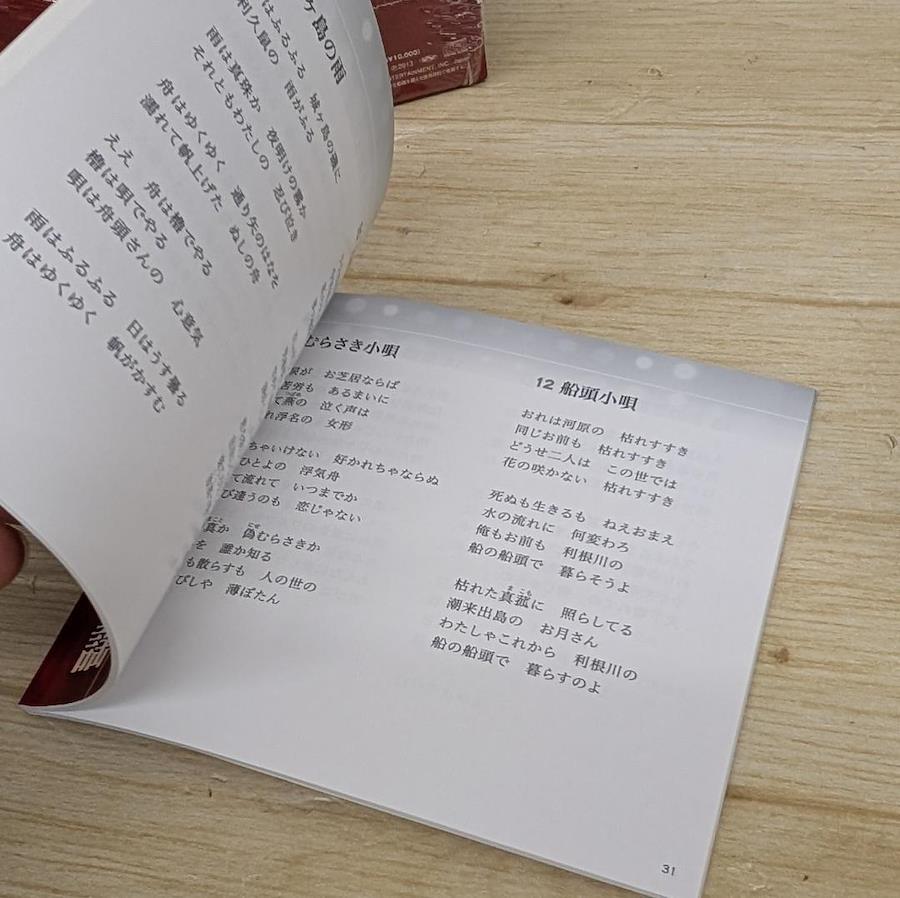 ヶ島の雨
はふるふる 城ヶ島の磯に
利久鼠の 雨がふる
雨は真珠か 夜明けの霧か
それともわたしの 忍び泣き
舟はゆくゆく 通り矢のはなを
濡れて帆上げた ぬしの舟
ええ 舟は櫓でやる
櫓は唄でやる
唄は舟頭さんの 心意気
雨はふるふる 日はうす曇る
舟はゆくゆく 帆がかすむ
むらさき小唄
が お芝居ならば
苦労も あるまいに
て燕の 泣く声は
れ浮名の 女形
ちゃいけない 好かれちゃならぬ
ひとよの 浮気舟
て流れて いつまでか
び逢うのも 恋じゃない
真か 偽むらさきか
を 誰か知る
も散らすも 人の世の
びしや 薄ぼたん
12 船頭小唄
おれは河原の 枯れすすき
同じお前も 枯れすすき
どうせ二人は この世では
花の咲かない 枯れすすき
死ぬも生きるも ねえおまえ
水の流れに 何変わろ
俺もお前も 利根川の
船の船頭で 暮らそうよ
枯れた真菰に 照らしてる
潮来出島の お月さん
わたしゃこれから 利根川の
船の船頭で 暮らすのよ
31
(¥10,000)